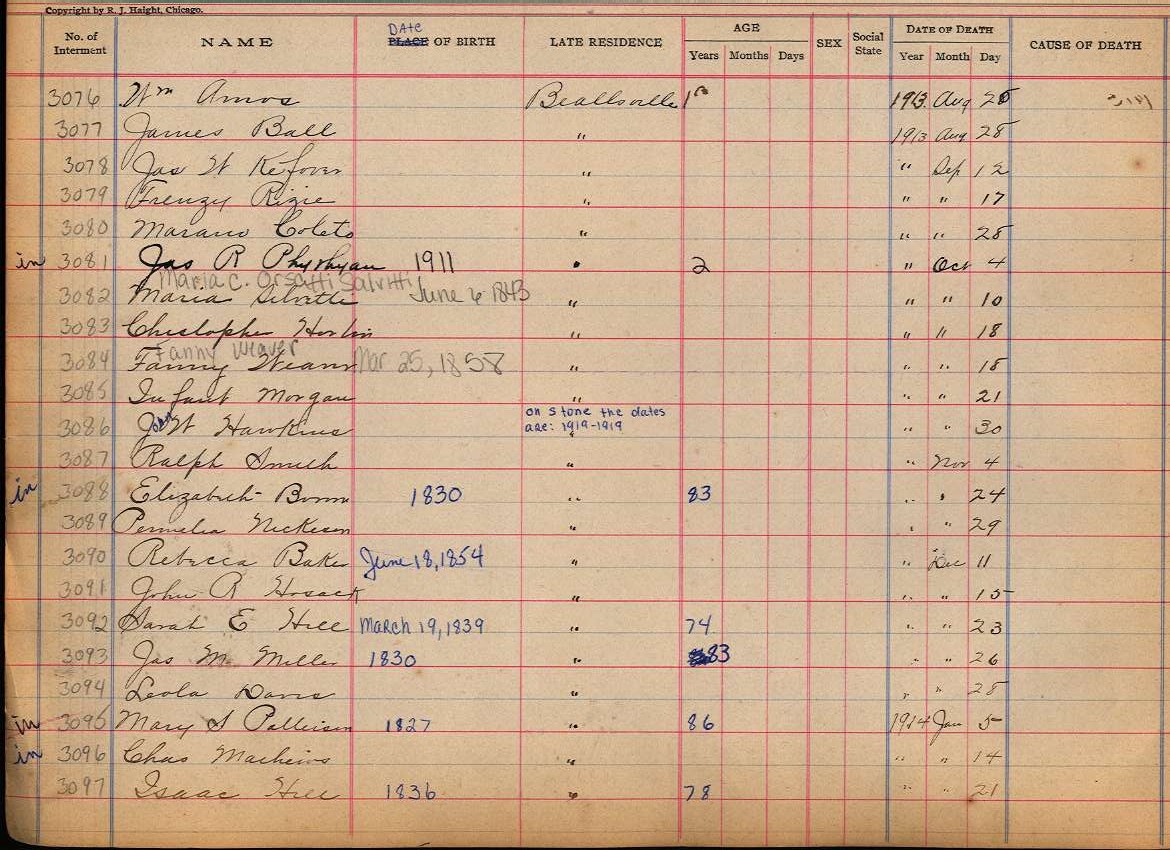 Copyright by R. J. Haight, Chicago.
No. of Interment NAME DATE PLACE OF BIRTH LATE RESIDENCE AGE Years Months Days SEX Social State DATE OF DEATH Year Month Day CAUSE OF DEATH
3076 Wm Amos Beallsville 1913 Aug 25
3077 James Ball " 1913 Aug 28
3078 Jas W Kefover " " Sep 12
3079 Frenzy Rizie " " " 17
3080 Marano Coleto " " " 28
in 3081 Jas R 1911 " 2 " Oct 4
Maria C. Orsatti Salvitti
3082 Maria Silvette June 6 1843 " " " 10
3083 Chistopher " " " 18
Fanny Weaver
3084 Fanny Mar 25, 1858 " " " 18
3085 Infant Morgan " " " 21
on stone the dates
3086 John W Hawkins are: 1919-1919 " " " 30
3087 Ralph Smith " " Nov 4
in 3088 Elizabeth 1830 " 83 " " 24
3089 Permelia Nickeson " " " 29
3090 Rebecca Baker June 18, 1854 " " Dec 11
3091 John R Hosack " " " 15
3092 Sarah E Hill March 19, 1839 " 74 " " 23
3093 Jas M Miller 1830 " 83 " " 26
3094 Leola Davis " " " 28
in 3095 Mary S Patterson 1827 " 86 1914 Jan 5
in 3096 Chas Mathews " " " 14
3097 Isaac Hill 1836 " 78 " " 21